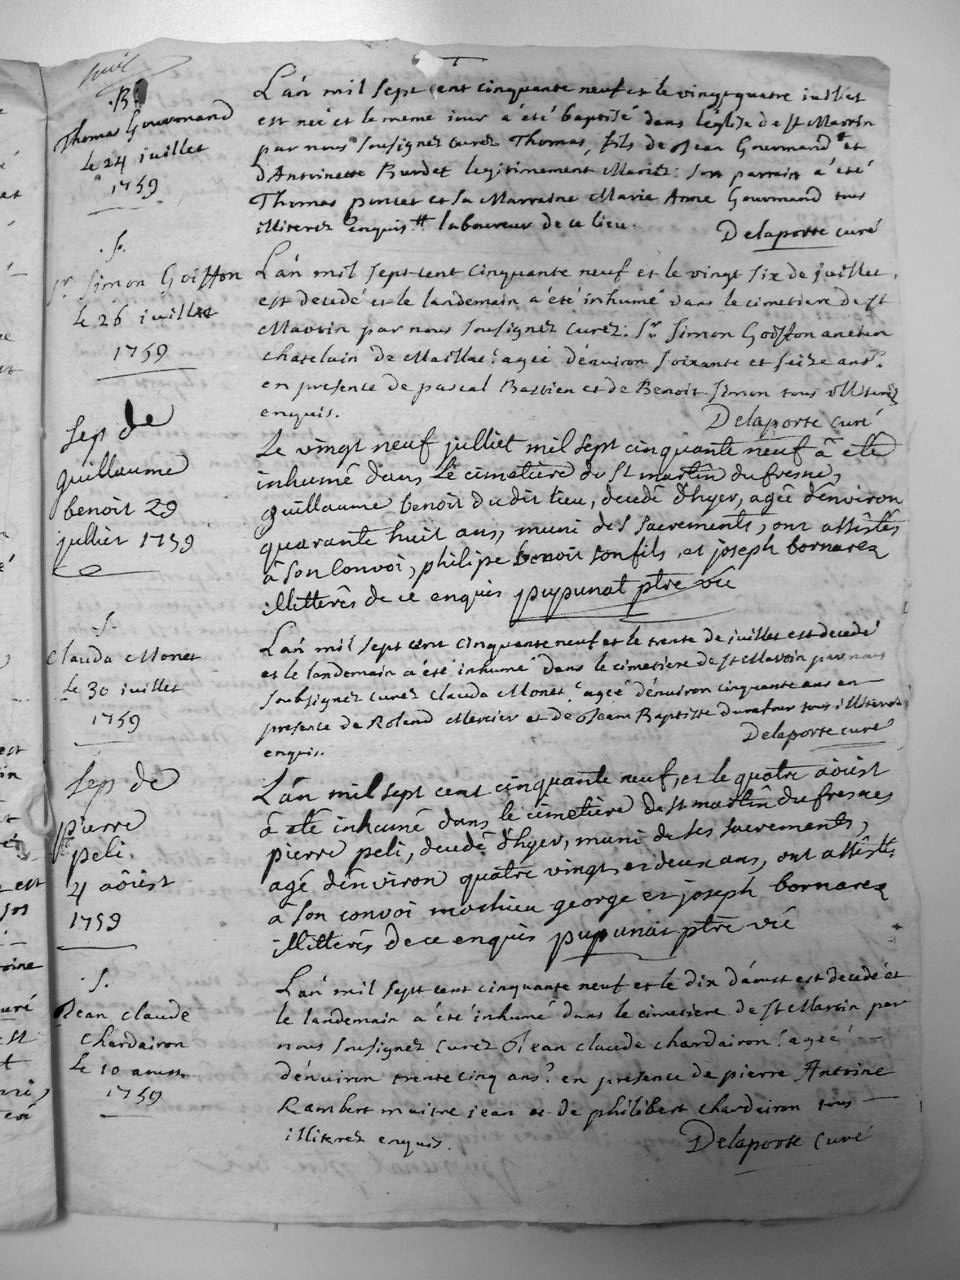 B
Thomas Gourmand
le 24 juillet
1759
L'an mil sept cent cinquante neuf et le vingt quatre juillet
est neé et le meme jour à été baptisé dans l'église de St Martin
par nous soussignez curez Thomas, fils de Jean Gourmand ++ et
d'Antoinette Burdet legitimement Mariez : son parrain à été
Thomas poncet et sa Marraine Marie Anne Gourmand tous
illiterez enquis ++ laboureur de ce lieu.
Delaporte curé
.S.
sr Simon Goiffon
le 26 juillet
1759
L'an mil sept cent cinquante neuf et le vingt six de juillet,
est decedé et le landemain a été inhumé dans le cimetiere de St
Martin par nous soussignez curez. Sr Simon Goiffon ancien
chatelain de Maillac ageé d'environ soixante et seize ans.
en presence de pascal Bastien et de Benoit Simon tous illiterez
enquis.
Delaporte curé
sep de
guillaume
benoit 29
jullier 1759
Le vingt neuf julliet mil sept cinquante neuf â eté
inhumé dans le cimetiére de St martin du fresne,
guillaume benoit dudit lieu, decedé d'hyer, agé d'environ
quarante huit ans, muni des sacrements, ont assistés
à son convoi, philipe benoit son fils, et joseph bornarez
illitterés de ce enquis pupunat ptre vic
.S.
Claude Monet
le 30 juillet
1759
L'an mil sept cent cinquante neuf et le trente de juillet est decedé
et le landemain a été inhumé dans le cimetiere de St Martin par nous
soubsignez curez Claude Monet ageé d'environ cinquante ans en
presence de Roland Mercier et de Jean Baptiste durafour tous illiterez
enquis.
Delaporte curé
sep de
pierre
peli.
4 aôust
1759
L'an mil sept cent cinquante neuf, et le quatre aôust
à eté inhumé dans le cimetiére de St martin du fresnes
pierre peli, decedé d'hyer, muni de ses sacrements,
agé d'environ quatre vingt et deux ans, ont assistés
a son convoi mathieu george et joseph bornarez
illitterés de ce enquis pupunat ptre vic
.S.
Jean claude
chardairon
le 10 aoust
1759
L'an mil sept cent cinquante neuf et le dix d'aoust est decedé et
le landemain a été inhumé dans le cimetiere de St Martin par
nous soussignez curez Jean claude chardairon ageé
d'environ trente cinq ans. en presence de pierre Antoine
Rambert maitre jean et de philibert chardairon tous
illiterez enquis.
Delaporte curé